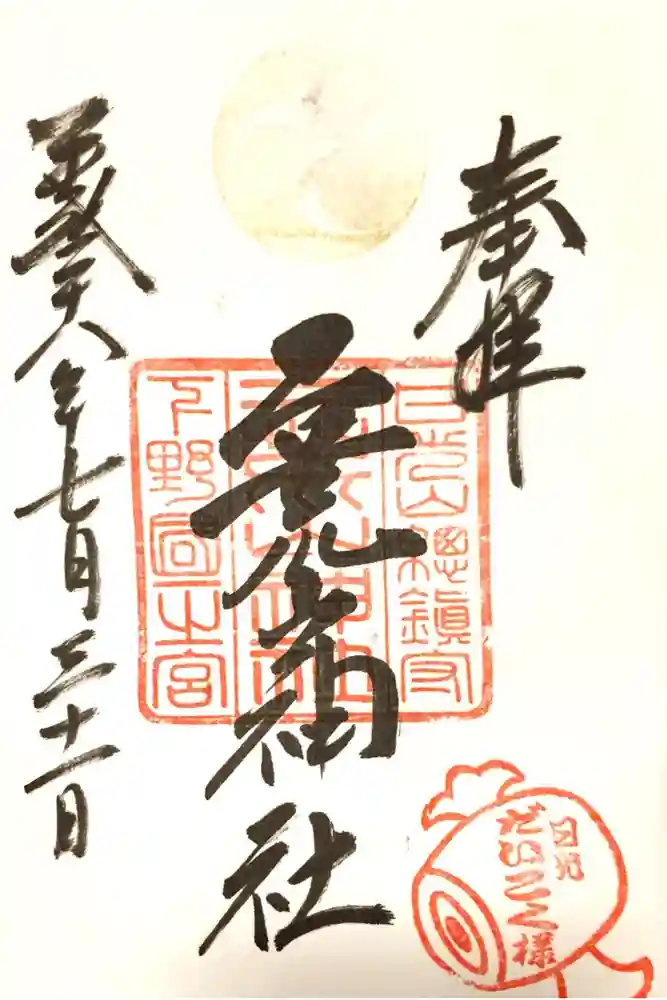 奉拝
二荒山神社
平成二十八年七月三十一日
日光山總鎮守
二荒山神社
下野國一之宮
日光
だいこく様